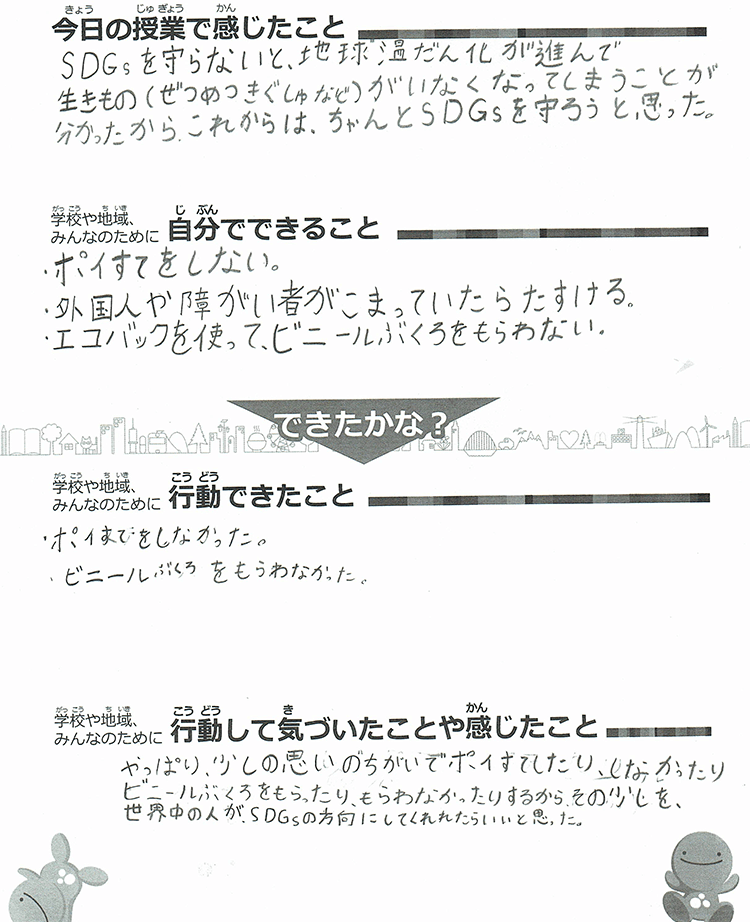 今日の授業で感じたこと
SDGsを守らないと、地球温だん化が進んで
生きもの(ぜつめつきぐしゅなど)がいなくなってしまうことが
分かったから、これからは、ちゃんとSDGsを守ろうと思った。
学校や地域、
みんなのために 自分でできること
・ポイすてをしない。
・外国人や障がい者がこまっていたらたすける。
・エコバックを使って、ビニールぶくろをもらわない。
できたかな?
学校や地域、
みんなのために 行動できたこと
・ポイすてをしなかった。
・ビニールぶくろをもらわなかった。
学校や地域、
みんなのために 行動して気づいたことや感じたこと
やっぱり、少しの思いのちがいでポイすてしたり、しなかったり
ビニールぶくろをもらったり、もらわなかったりするから、その少しを、
世界中の人が、SDGsの方向にしてくれれたらいいと思った。